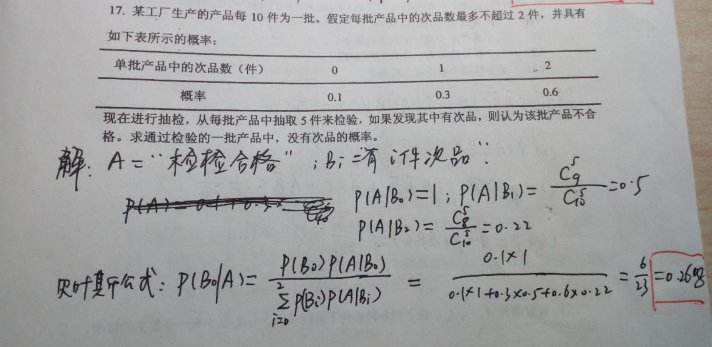 17. 某工厂生产的产品每 10 件为一批。假定每批产品中的次品数最多不超过 2 件，并具有
如下表所示的概率：
单批产品中的次品数（件） 0 1 2
概率 0.1 0.3 0.6
现在进行抽检，从每批产品中抽取 5 件来检验，如果发现其中有次品，则认为该批产品不合
格。求通过检验的一批产品中，没有次品的概率。
解：A = "检检合格"；Bi = "有i件次品"．
P(A|B₀)=1；P(A|B₁)= C₉⁵/C₁₀⁵ =0.5
P(A|B₂)= C₈⁵/C₁₀⁵ =0.22
贝叶斯公式：P(B₀|A)= P(B₀)P(A|B₀) / ∑_{i=0}^{2} P(Bi)P(A|Bi) = 0.1×1 / 0.1×1+0.3×0.5+0.6×0.22 = 6/23 =0.2608